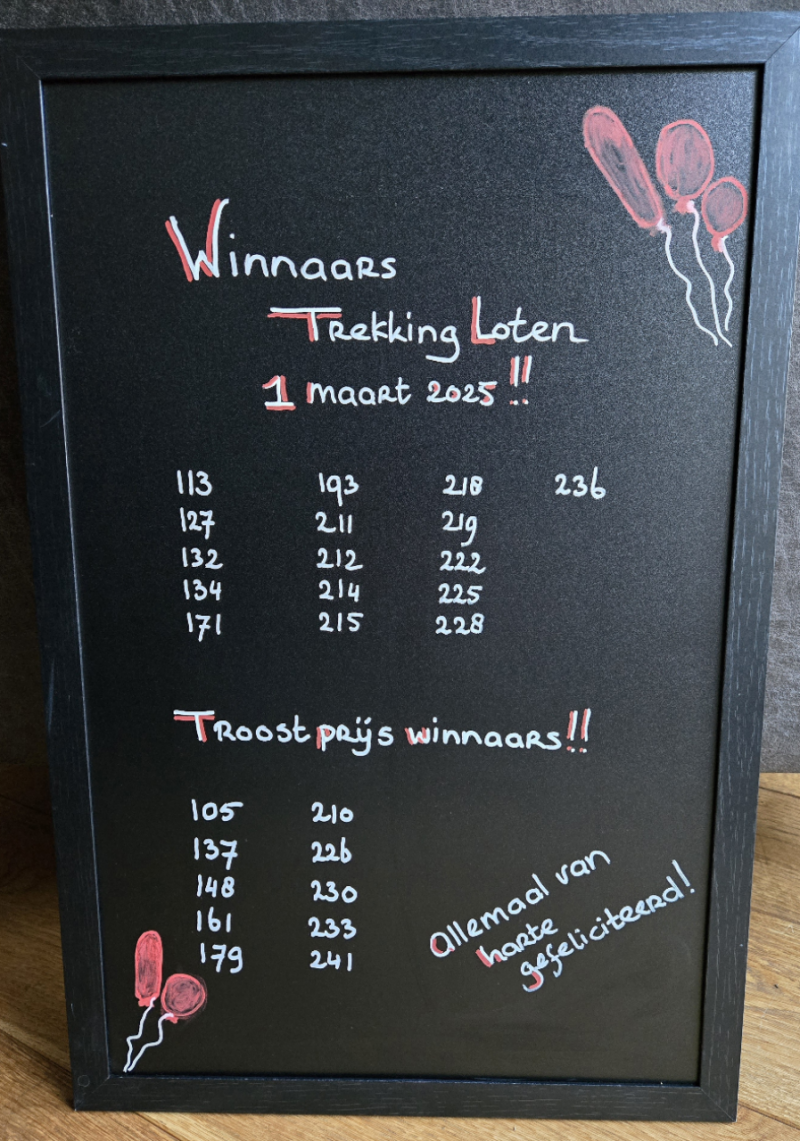 Winnaars
Trekking Loten
1 maart 2025 !!
113 193 218 236
127 211 219
132 212 222
134 214 225
171 215 228
Troostprijs winnaars!!
105 210
137 226
148 230
161 233
179 241
Allemaal van
harte
gefeliciteerd!